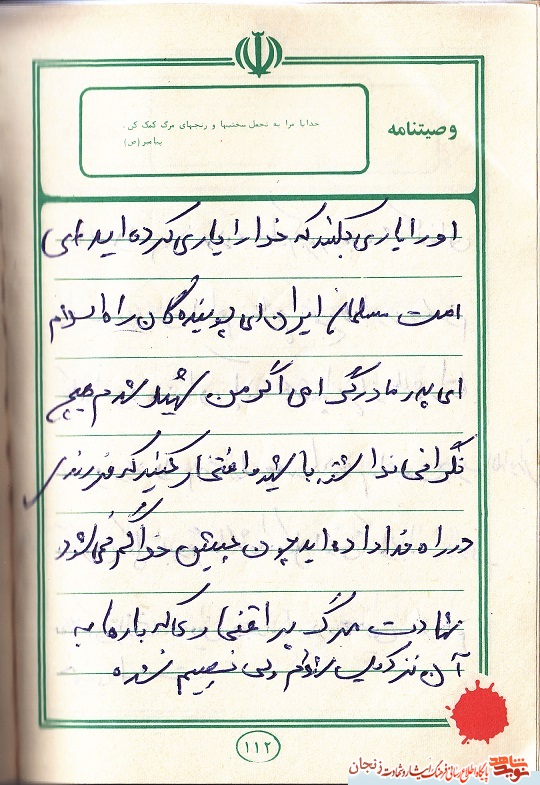 وصیتنامه
خدایا مرا به تحمل سختیها و رنجهای مرگ کمک کن.
پیامبر (ص)
او را یاری کنید که خدا را یاری کرده اید ای
امت مسلمان ایران ای پوینده گان راه اسلام
ای پدر مادر گرامی اگر من شهید شدم هیچ
نگرانی نداشته باشید و افتخار کنید که فرزندی
در راه خدا داده اید چون پیش خدا گم نمی شود
شهادت مرگ پر افتخاری که بارها به
آن نزدیک شدم ولی نصیبم نشده
۱۱۲
نوید شاهد
پایگاه اطلاع رسانی فرهنگ ایثار و شهادت زنجان